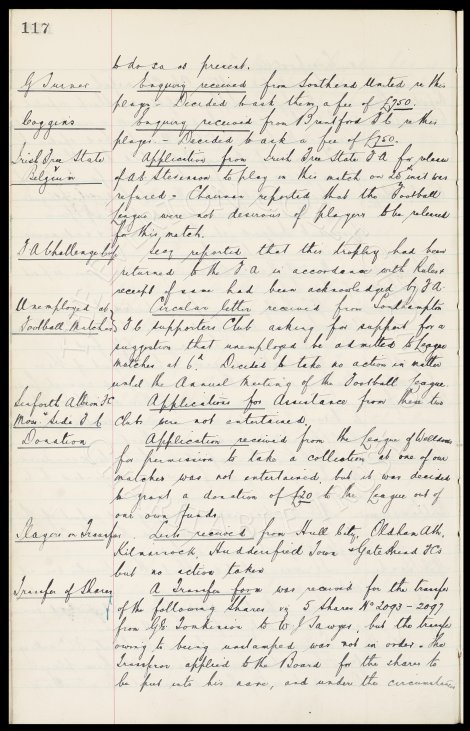 117
to do so as present.
G Turner
Enquiry received from Southend United re this
player - Decided to ask them a fee of £750.
Coggins
Enquiry received from Brentford F.C. re this
player. - Decided to ask a fee of £750.
Irish Free State
v
Belgium
Application from Irish Free State F.A. for release
of Ab Stevenson to play in this match on 26th inst was
refused - Chairman reported that the Football
League were not desirous of players to be released
for this match.
F A Challenge Cup
Secy reported that this trophy had been
returned to the F A in accordance with Rules &
receipt of same had been acknowledged by F A
Unemployed at
Football Matches
Circular letter received from Southampton
F C Supporters Club asking for support for a
suggestion that unemployed be admitted to League
matches at 6d. Decided to take no action in matter
until the Annual Meeting of the Football League
Seaforth Albion F C
Moss Side F C
Applications for Assistance from these two
Clubs were not entertained.
Donation
Application received from the League of Welldoers
for permission to take a collection at one of our
matches was not entertained but it was decided
to grant a donation of £20 to the League out of
our own funds.
Players on Transfer.
Lists received from Hull City, Oldham Ath,
Kilmarnock, Huddersfield Town & Gateshead F Cs
but no action taken
Transfer of Shares
A Transfer form was received for the transfer
of the following shares viz 5 Shares No 2093 - 2097
from G E Tomkinson to W J Sawyer, but the transfer
owing to being unstamped was not in order. The
Transferor applied to the Board for the shares to
be put into his name, and under the circumstances